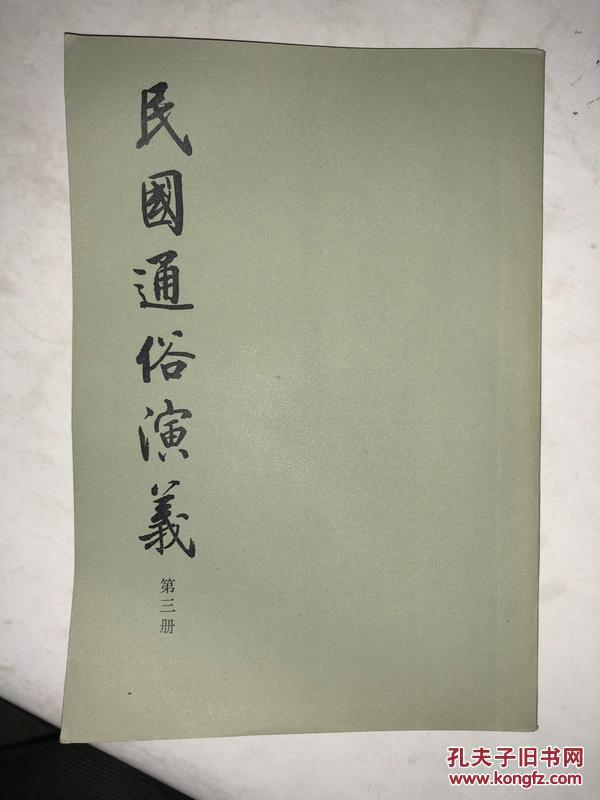 民國通俗演義
第三册
孔夫子旧书网
www.kongfz.com